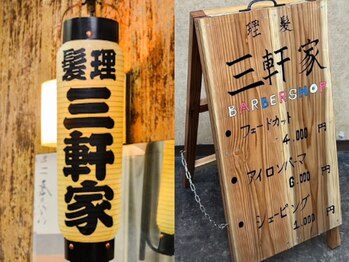 理髪
三軒家
理髪
三軒家
BARBERSHOP
フェードカット
4,000円
アイロンパーマ
6,000円
シェービング
1,000円